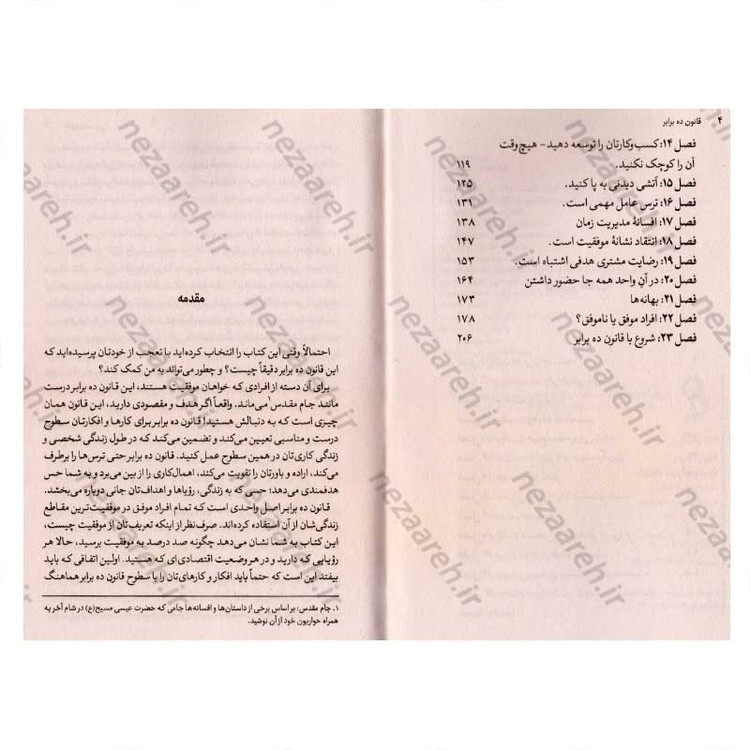 ۴ قانون ده برابر
فصل ۱۴: کسب‌وکارتان را توسعه دهید- هیچ‌وقت
آن را کوچک نکنید. ۱۱۹
فصل ۱۵: آتشی دیدنی به پا کنید. ۱۲۵
فصل ۱۶: ترس عامل مهمی است. ۱۳۱
فصل ۱۷: افسانهٔ مدیریت زمان ۱۳۸
فصل ۱۸: انتقاد نشانهٔ موفقیت است. ۱۴۷
فصل ۱۹: رضایت مشتری هدفی اشتباه است. ۱۵۳
فصل ۲۰: در آنِ واحد همه جا حضور داشتن ۱۶۴
فصل ۲۱: بهانه‌ها ۱۷۳
فصل ۲۲: افراد موفق یا ناموفق؟ ۱۷۸
فصل ۲۳: شروع با قانون ده برابر ۲۰۶
مقدمه
احتمالاً وقتی این کتاب را انتخاب کرده‌اید با تعجب از خودتان پرسیده‌اید که
این قانون ده برابر دقیقاً چیست؟ و چطور می‌تواند به من کمک کند؟
برای آن دسته از افرادی که خواهان موفقیت هستند، این قانون ده برابر درست
مانند جام مقدس۱ می‌ماند. واقعاً اگر هدف و مقصودی دارید، این قانون همان
چیزی است که به دنبالش هستید! قانون ده برابر برای کارها و افکارتان سطوح
درست و مناسبی تعیین می‌کند و تضمین می‌کند که در طول زندگی شخصی و
زندگی کاری‌تان در همین سطوح عمل کنید. قانون ده برابر حتی ترس‌ها را برطرف
می‌کند، اراده و باورتان را تقویت می‌کند، اهمال‌کاری را از بین می‌برد و به شما حس
هدفمندی می‌دهد؛ حسی که به زندگی، رؤیاها و اهداف‌تان جانی دوباره می‌بخشد.
قانون ده برابر اصل واحدی است که تمام افراد موفق در موفقیت‌ترین مقاطع
زندگی‌شان از آن استفاده کرده‌اند. صرف‌نظر از اینکه تعریف‌تان از موفقیت چیست،
این کتاب به شما نشان می‌دهد چگونه صد درصد به موفقیت برسید، حالا هر
رؤیایی که دارید و در هر وضعیت اقتصادی‌ای که هستید. اولین اتفاقی که باید
بیفتد این است که حتماً باید افکار و کارهای‌تان را با سطوح قانون ده برابر هماهنگ
۱. جام مقدس: بر اساس برخی از داستان‌ها و افسانه‌ها جامی که حضرت عیسی مسیح(ع) در شام آخر به
همراه حواریون خود از آن نوشید.
nezaareh.ir
nezaareh.ir
nezaareh.ir
nezaareh.ir
nezaareh.ir
nezaareh.ir
nezaareh.ir
nezaareh.ir